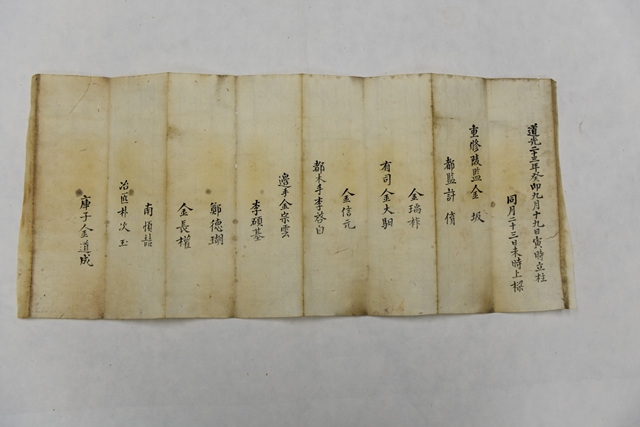 道光二十三年癸卯九月十九日寅時立柱
同月二十三日未時上樑
重修都監金坂
都監許倩
金瑞柞
有司金大馹
金信元
都木手李啓白
邊手金宗雲
李碩基
鄭德瑚
金長權
南順喆
冶匠井次玉
庫子金道成